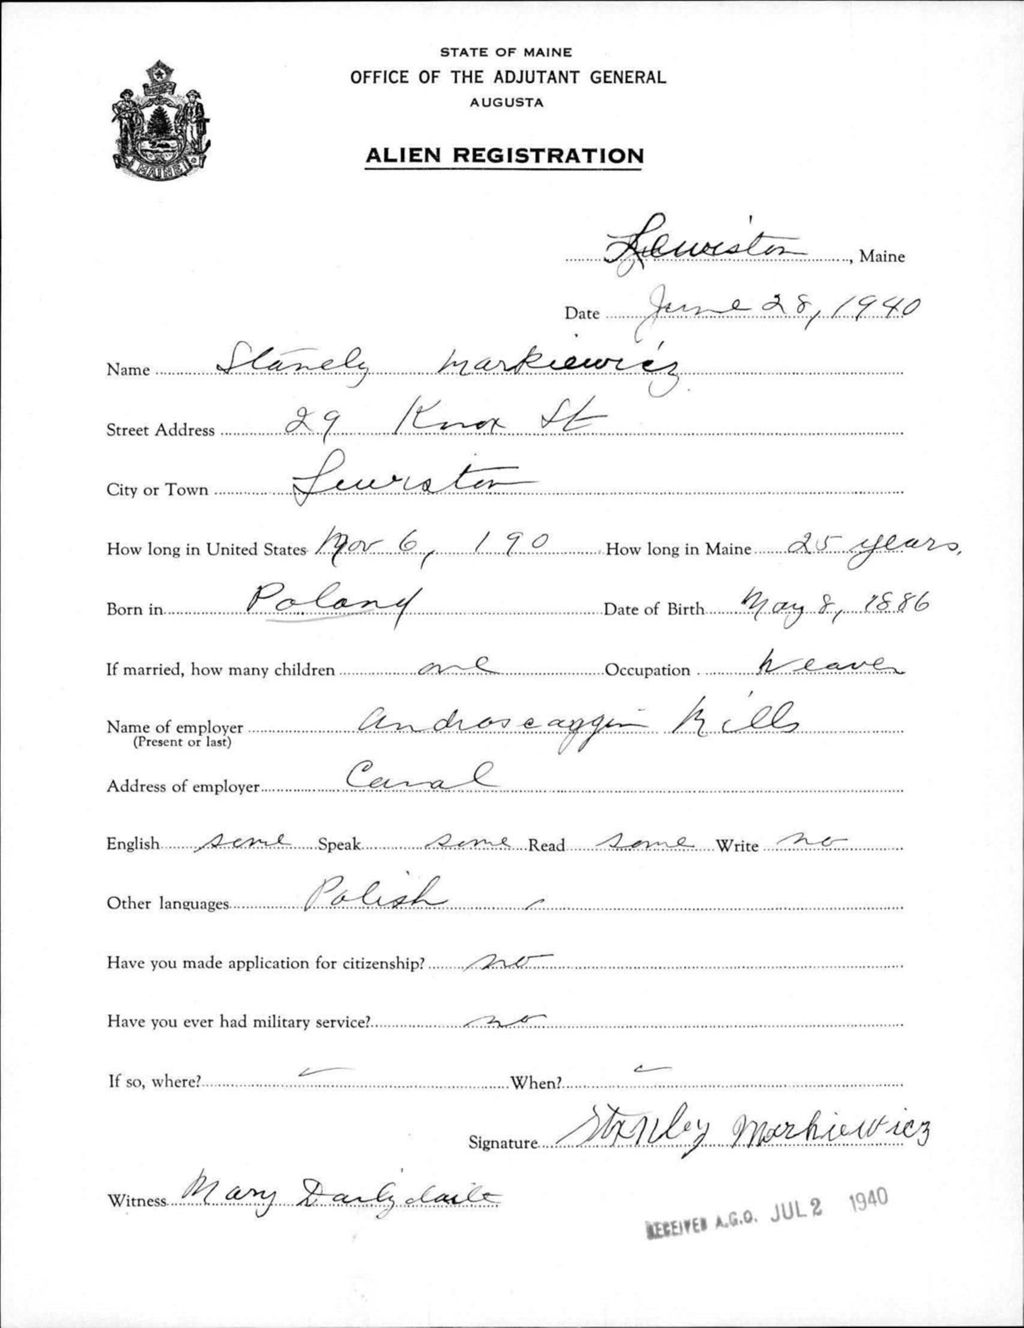 STATE OF MAINE
OFFICE OF THE ADJUTANT GENERAL
AUGUSTA
ALIEN REGISTRATION
MAINE
Lewiston, Maine
Date June 28, 1940
Name Stanely Markiewicz
Street Address 29 Knox St
City or Town Lewiston
How long in United States Nov 6, 190 How long in Maine 25 years.
Born in Poland Date of Birth May 8, 1886
If married, how many children one Occupation Weaver
Name of employer Androscoggin Mills
(Present or last)
Address of employer Canal
English some Speak some Read some Write no
Other languages Polish
Have you made application for citizenship? no
Have you ever had military service? no
If so, where? When?
Signature Stanley Markiewicz
Witness Mary
RECEIVED A.G.O. JUL 2 1940